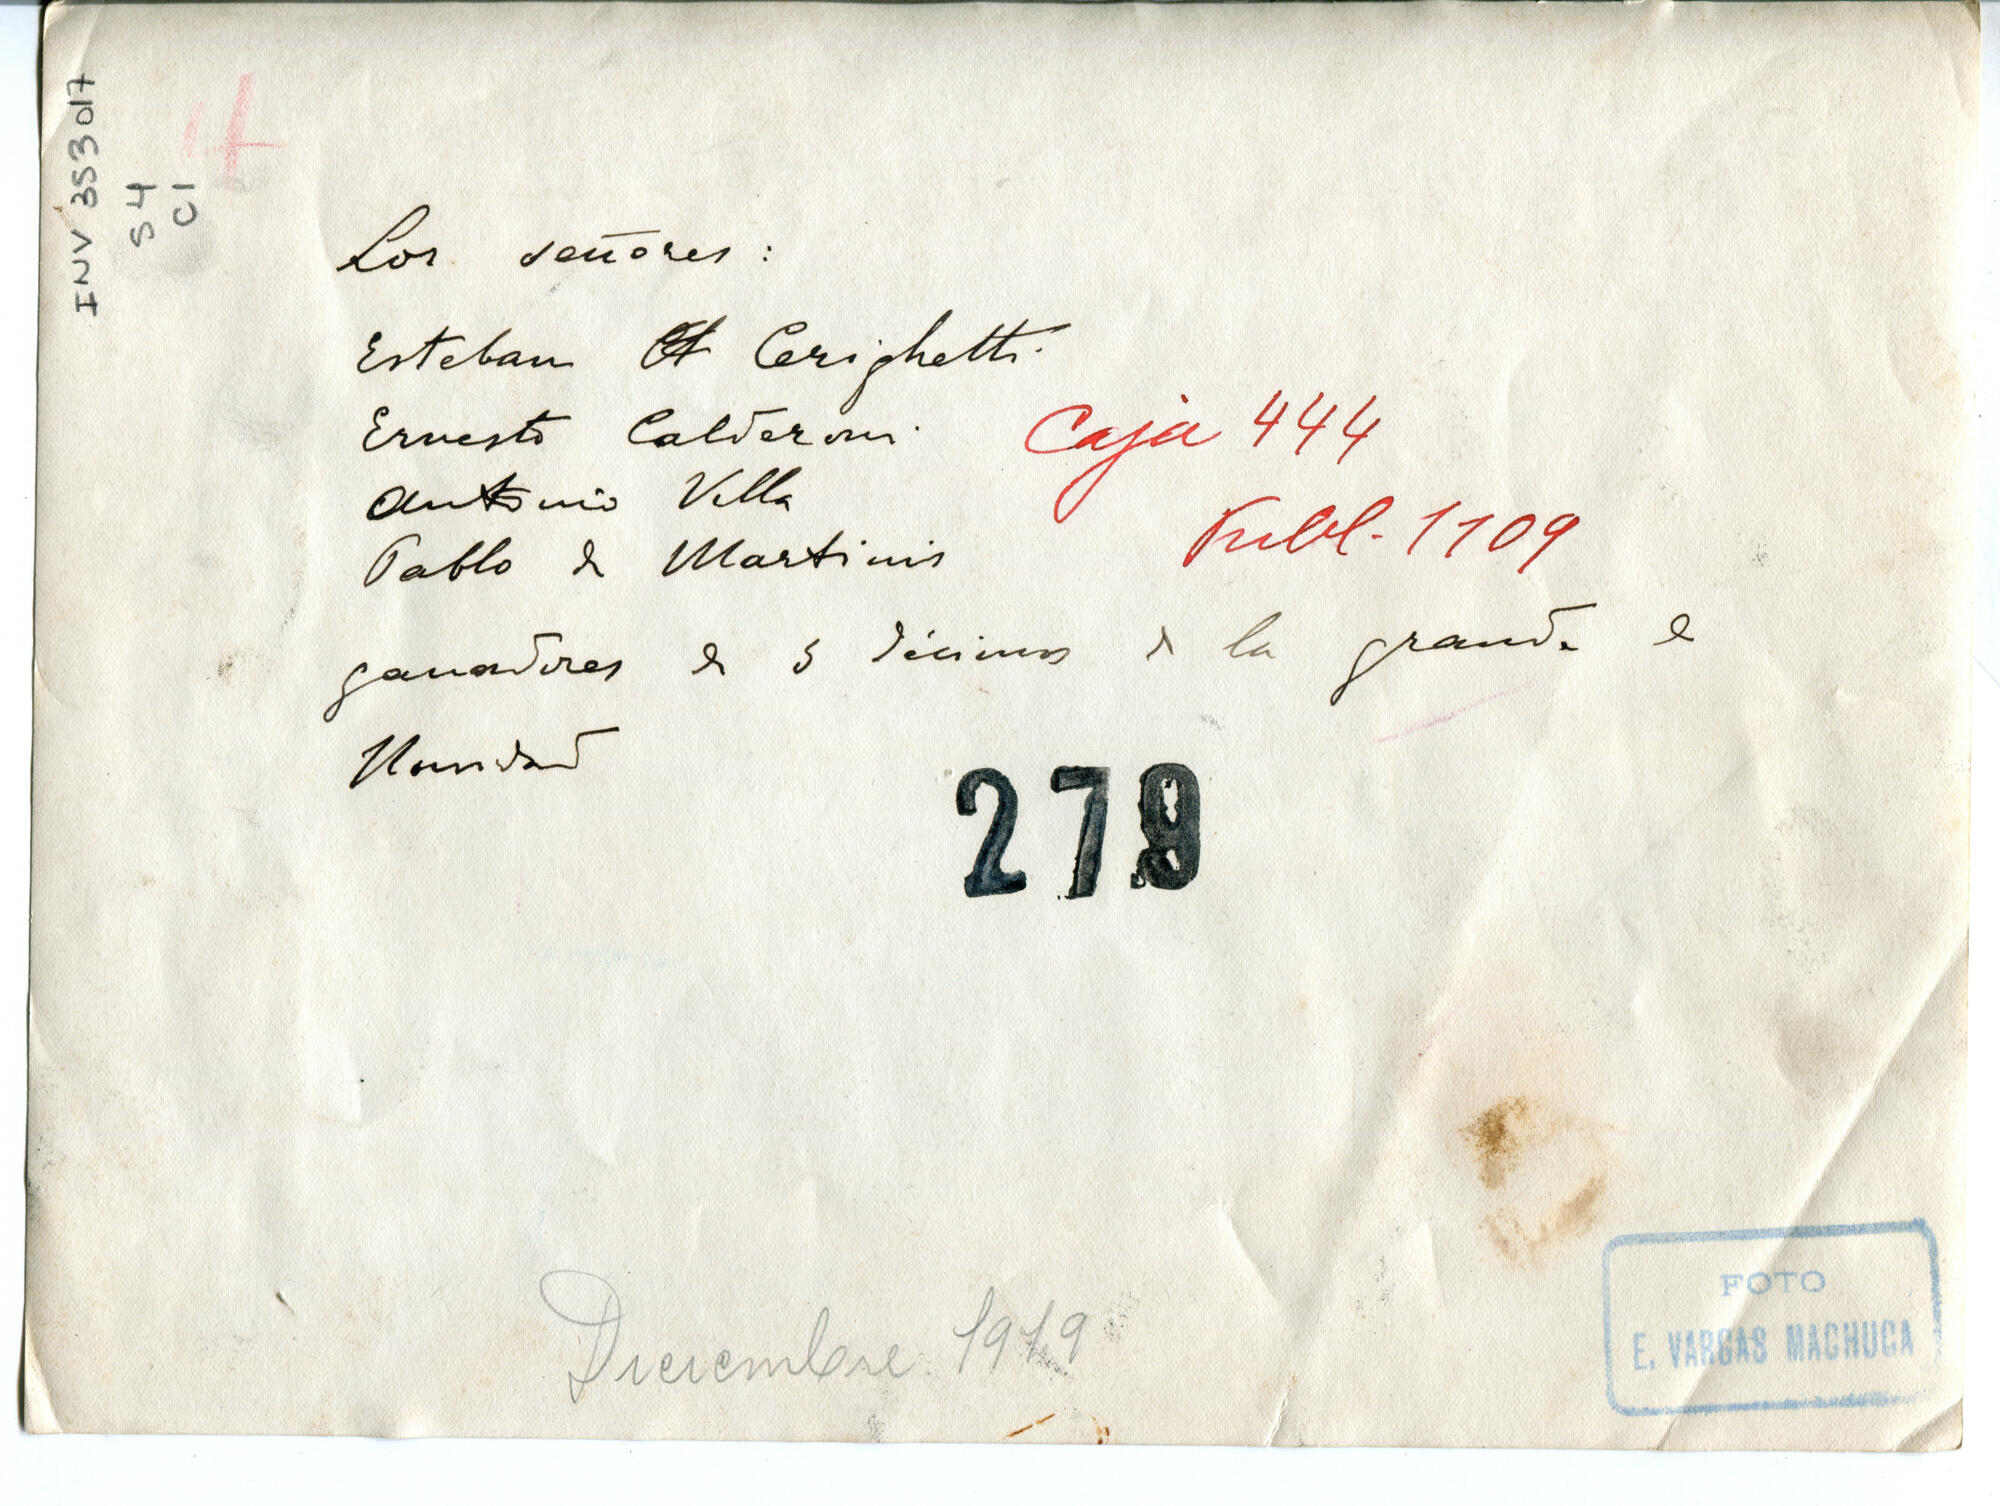 INV 353017
S4
C1
4
Los señores:
Esteban A Cerighetti
Ernesto Calderoni
Caja 444
Antonio Villa
Publ. 1109
Pablo de Martinis
ganadores de 5 décimos de la grande de
Navidad
279
Diciembre 1919
FOTO
E. VARGAS MACHUCA